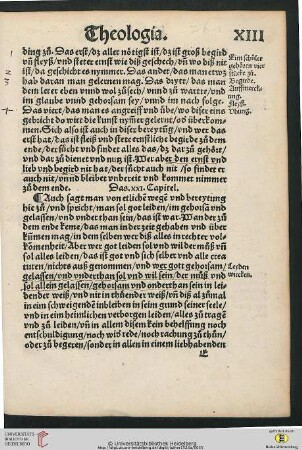 Theologia. XIII
ding zů. Das erst/dz aller nötigst ist/dz ist groß begird
vñ fleyß/vnd steter ernst wie diß geschech/vñ wo diß nit
ist/da geschicht es nymmer. Das ander/das man etwz
hab daran man gelernen mag. Das dryt/das man
dem lerer eben vnnd wol zů sech/vnnd zů wartte/vnd
im glaube vnnd gehorsam sey/vnnd im nach folge.
Das viert/das man es angreiff vnd übe/wo diser eins
gebricht do wirt die kunst nymer gelernt/oď überkomen.
Sich also ist auch in diser bereytũg/vnd wer das
erst hat/das ist fleiß vnd steter ernstliche begird zů dem
ende/der sůcht vnd findet alles das/dz dar zů gehört/
vnd dar zů dienet vnd nutz ist. Wer aber den ernst vnd
lieb vnd begird nit hat/der sůcht auch nit/so findet er
auch nit/vnd bleibet vnbereit vnd kommet nimmer
zů dem ende.
Das. xxi. Capitel.
Auch sagt man von etliche wege vnd bereytung
hie zů/vnd spricht/man sol got leiden/im gehorsã vnd
gelassen/vnd vnder than sein/das ist war. Wan der zů
dem ende keme/das man in der zeit haben vnd über
kůmen mag/in dem selben wer diß alles in rechter volkomenheit.
Aber wer got leiden sol vnd wil der můß vñ
sol alles leiden/das ist got vnd sich selber vnd alle creaturen/nichts
auß genommen/vnd wer got gehorsam/
gelassen/vnd vnderthan sol vnd wil sein/der můß vnd
sol allem gelassen/gehorsam vnd vnderthan sein in leidender
weiß/vnd nit in thůender weiß/vnd diß al zůmal
in ein schweigende inbleiben in seim grund seiner sele/
vnd in ein heimlichen verborgen leiden/alles zů tragẽ
vnd zů leiden/vñ in allem disem kein behelffung noch
entschuldigung/noch wid rede/noch rachung zů thůn/
oder zů begeren/sonder in allen in einem liebhabenden
Ein schůler
gehören vier
stuck zů.
Begirde.
Auffmerckung.
fleyß.
Übung.
Leyden
wircken.
UNIVERSITÄTS-
BIBLIOTHEK
HEIDELBERG
© Universitätsbibliothek Heidelberg